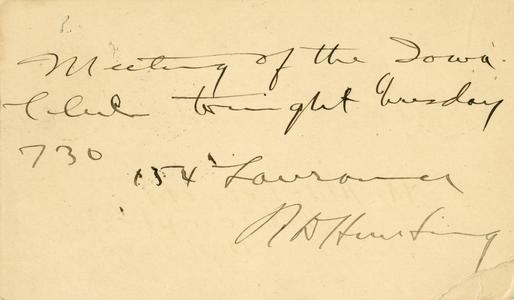 Meeting of the Iowa
Club tonight Tuesday
730
154 Lawrence
R D Hunting